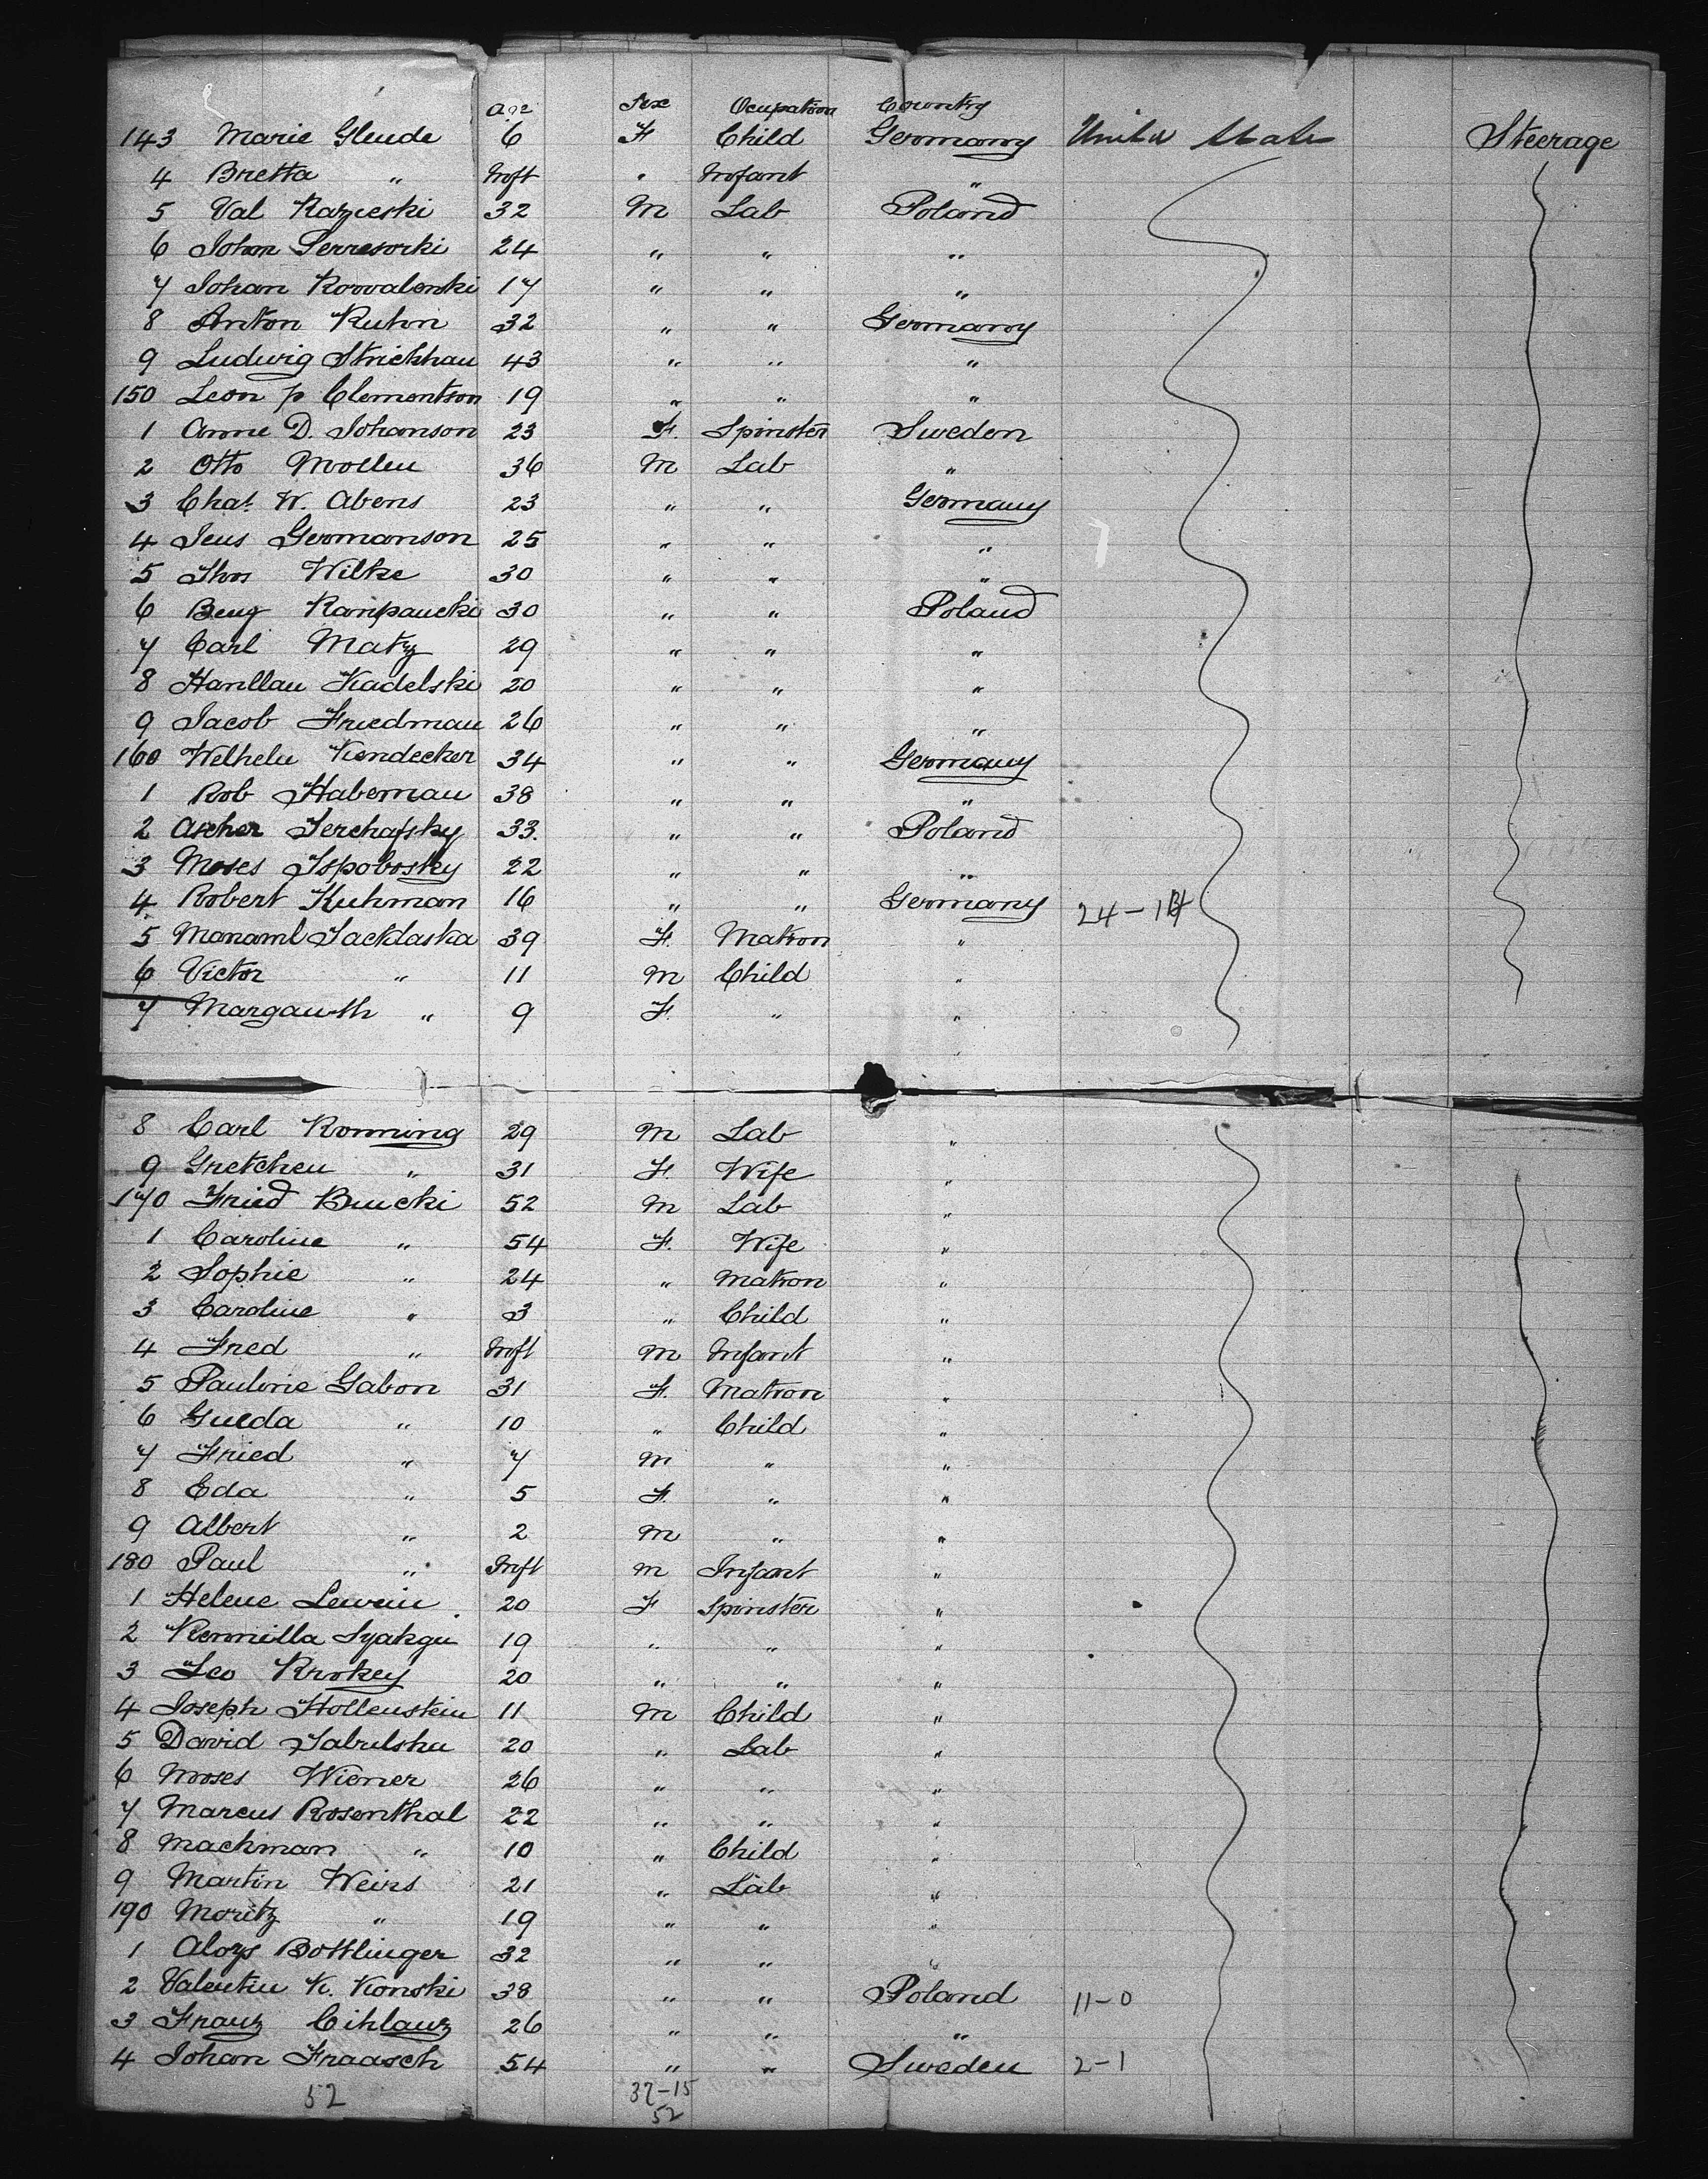 Age Sex Ocupation Country
143 Marie Gleude 6 F Child Germany United States Steerage
4 Bretta " Inft " Infant "
5 Val Kazieski 32 M Lab Poland
6 Johan 24 " " "
7 Johan Kowalenski 17 " " "
8 Anton Kuhn 32 " " Germany
9 Ludwig Strickhau 43 " " "
150 Leon p Clementson 19 " " "
1 Anne D. Johanson 23 F. Spinster Sweden
2 Otto Mollen 36 M Lab "
3 Chas. W. Abens 23 " " Germany
4 Jens Germanson 25 " " "
5 Thos Wilke 30 " " "
6 Benj Kanpaucki 30 " " Poland
7 Carl Matz 29 " " "
8 Hanllau Kadelski 20 " " "
9 Jacob Friedman 26 " " "
160 Welhelm Kendecker 34 " " Germany
1 Rob Haberman 38 " " "
2 Ascher Jerchafsky 33. " " Poland
3 Moses Ispobosky 22 " " "
4 Robert Kuhman 16 " " Germany 24-14
5 Manaml Jackdaska 39 F. Matron "
6 Victor " 11 M Child "
7 Margauth " 9 F. " "
8 Carl Konning 29 M Lab "
9 Gretchen " 31 F. Wife "
170 Fried Bucki 52 M Lab "
1 Caroline " 54 F. Wife "
2 Sophie " 24 " Matron "
3 Caroline " 3 " Child "
4 Fred " Inft M Infant "
5 Pauline Gabon 31 F. Matron "
6 Gueda " 10 " Child "
7 Fried " 7 M " "
8 Eda " 5 F. " "
9 Albert " 2 M " "
180 Paul " Inft M Infant "
1 Helene Lewin 20 F Spinster "
2 Kennilla Syakgu 19 " " "
3 Leo Krokey 20 " " "
4 Joseph Hollenstein 11 M Child "
5 David Jabulsku 20 " Lab "
6 Moses Wiener 26 " " "
7 Marcus Rosenthal 22 " " "
8 Machman " 10 " Child "
9 Martin Weins 21 " Lab "
190 Moritz " 19 " " "
1 Aloys Bottlinger 32 " " "
2 Valentin K. Konski 38 " " Poland 11-0
3 Franz Cihlauz 26 " " "
4 Johan Fraasch 54 " " Sweden 2-1
52 37-15
52